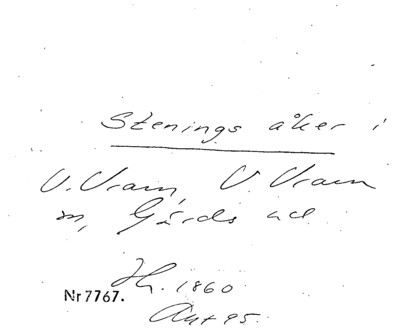 Stenings åker i
V. Vram, V Vram
sn, Gärds hd
Nr 7767. Hl. 1860
Ant 95.